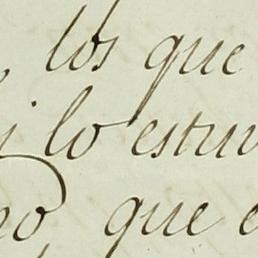 los que
lo estuv
que